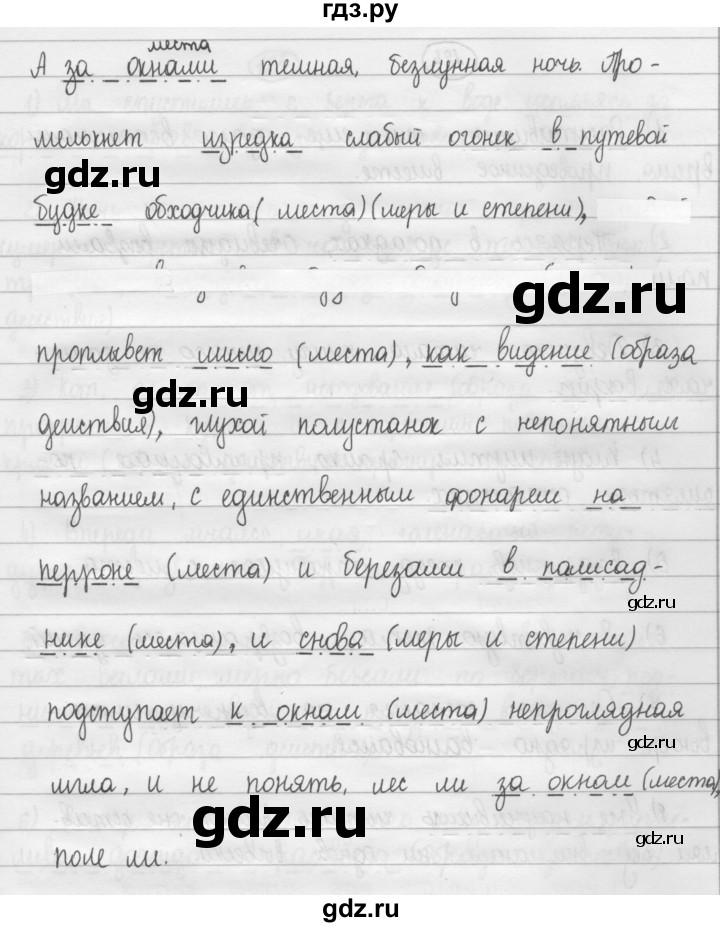 гдз.ру
места
А за окнами темная, безлунная ночь. Про-
мелькнет изредка слабый огонек в путевой
gdz.ru
gdz.ru
будке обходчика (места) (меры и степени),
gdz.ru
проплывет мимо (места), как видение (образа
gdz.ru
действия), глухой полустанок с непонятным
названием, с единственным фонарем на
перроне (места) и березами в палисад-
gdz.ru
нике (места), и снова (меры и степени)
подступает к окнам (места) непроглядная
gdz.ru
мгла, и не понять, лес ли за окнам (места),
gdz.ru
поле ли.
gdz.ru
gdz.ru